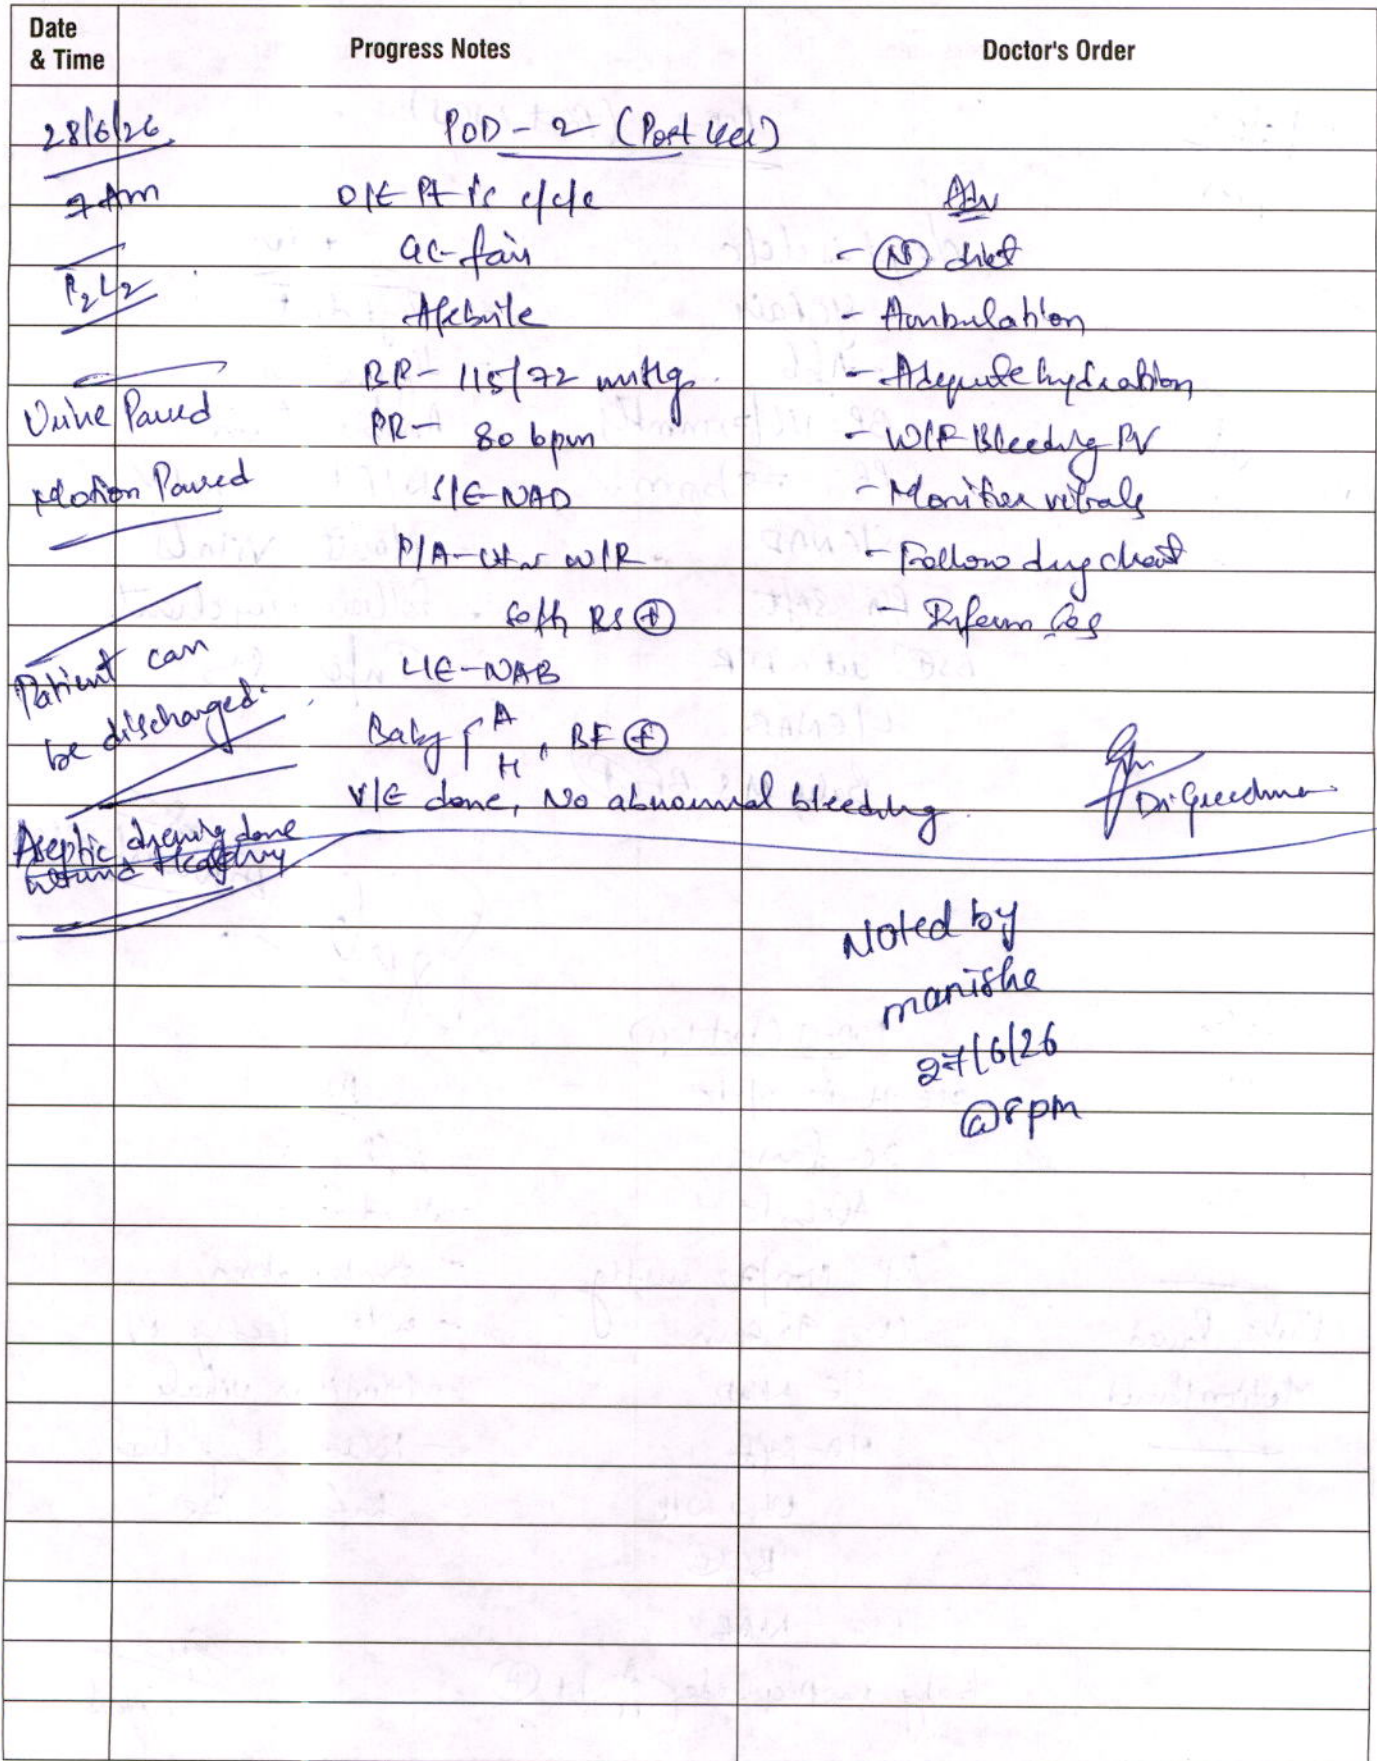 Date & Time
Progress Notes
Doctor's Order
28/6/26
POD - 2 (Post
7 Am
O/E Pt is c/c/c
Adv
GC - fair
- (N) diet
P2L2
Afebrile
- Ambulation
BP - 115/72 mmHg
- Adequate hydration
Urine Passed
PR - 80 bpm
- W/F Bleeding PV
Motion Passed
S/E - NAD
- Monitor vitals
P/A - Ut ~ W/R
- Follow drug chart
soft, BS ⊕
- Inform
Patient can
be discharged.
L/E - NAB
Baby { A
H , BF ⊕
V/E done, No abnormal bleeding
Dr.
Aseptic dressing done
wound healthy
Noted by
manisha
27/6/26
@ 8 pm